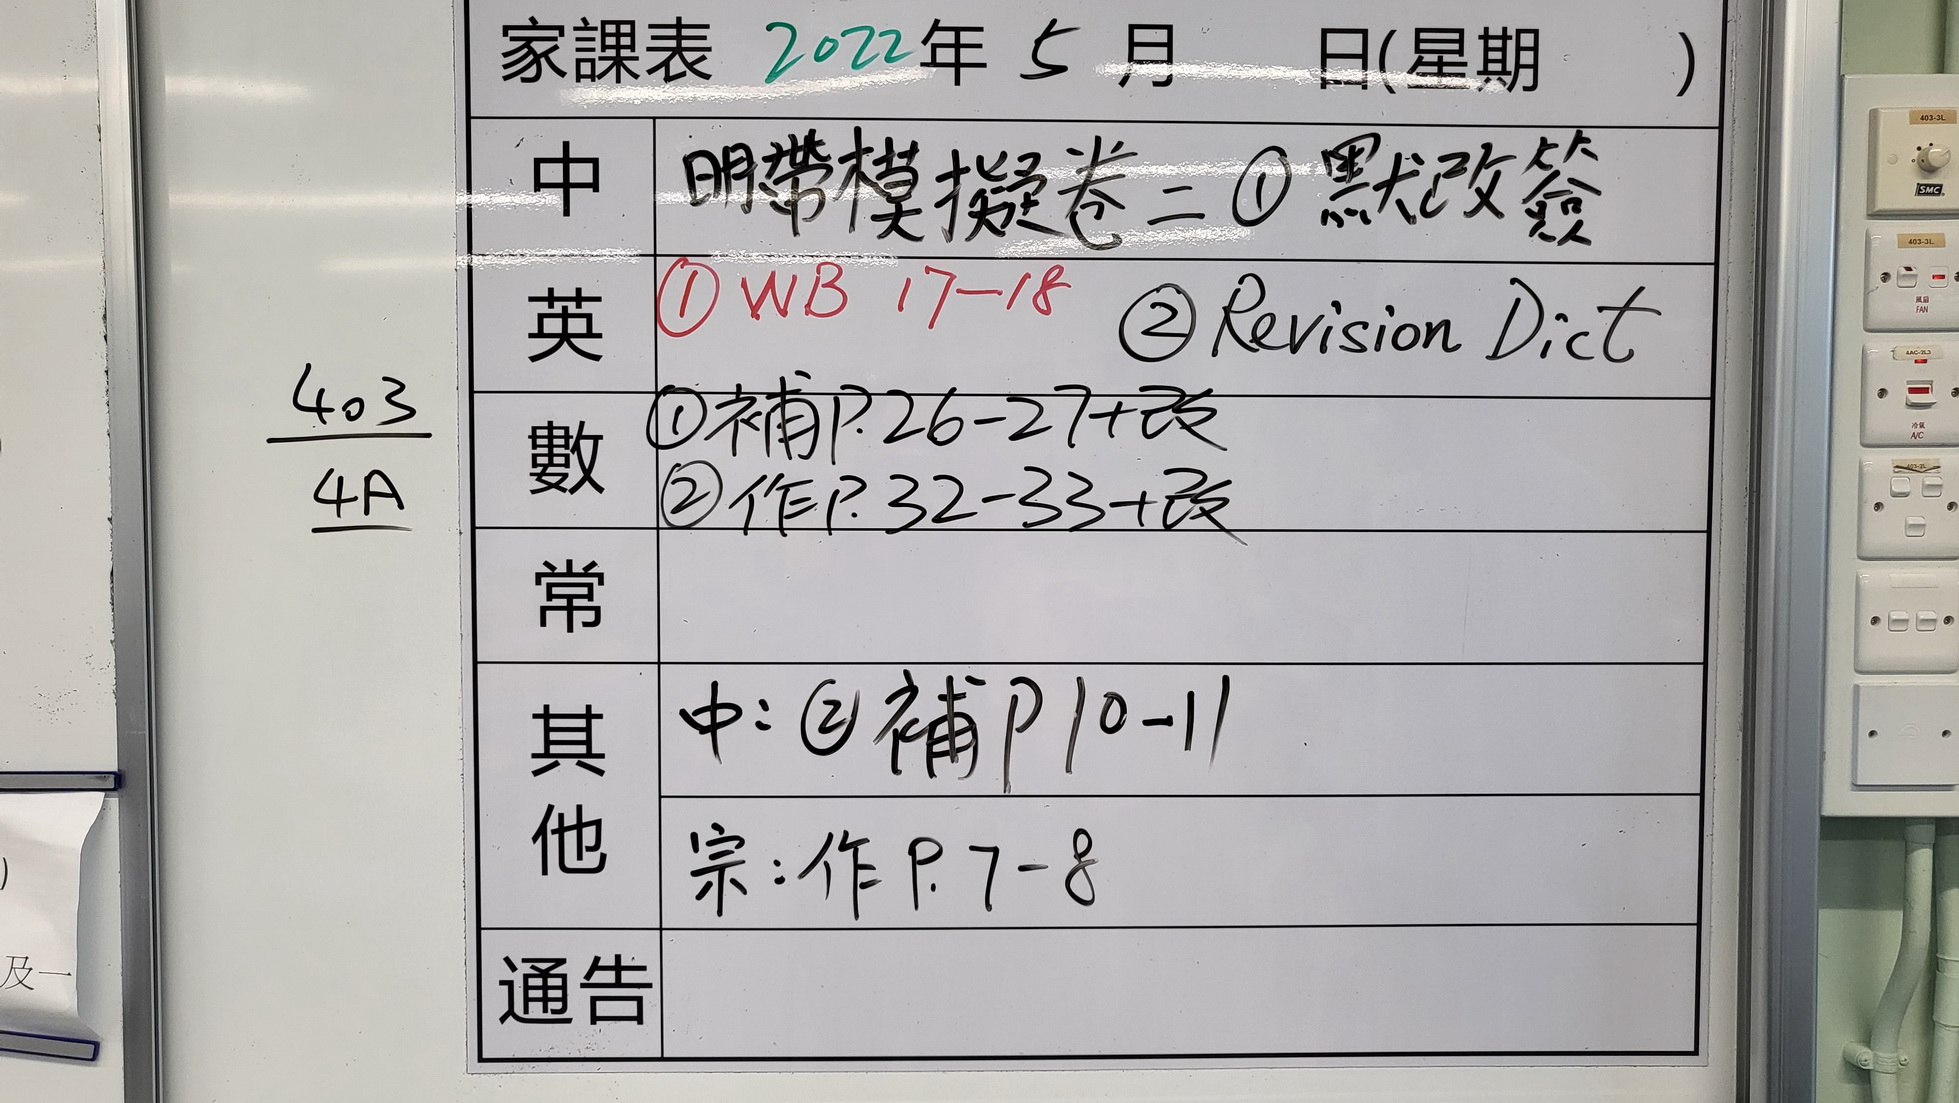 家課表 2022年 5 月 日(星期 )
中 明帶模擬卷二 ① 默改簽
英 ① WB 17-18 ② Revision Dict
403
4A
數 ①補P.26-27+改
②作P.32-33+改
常
其他 中:②補P10-11
宗:作P.7-8
通告
)
及一
403-3L
SMC
403-3L
風扇
FAN
4AC-2L3
冷氣
A/C